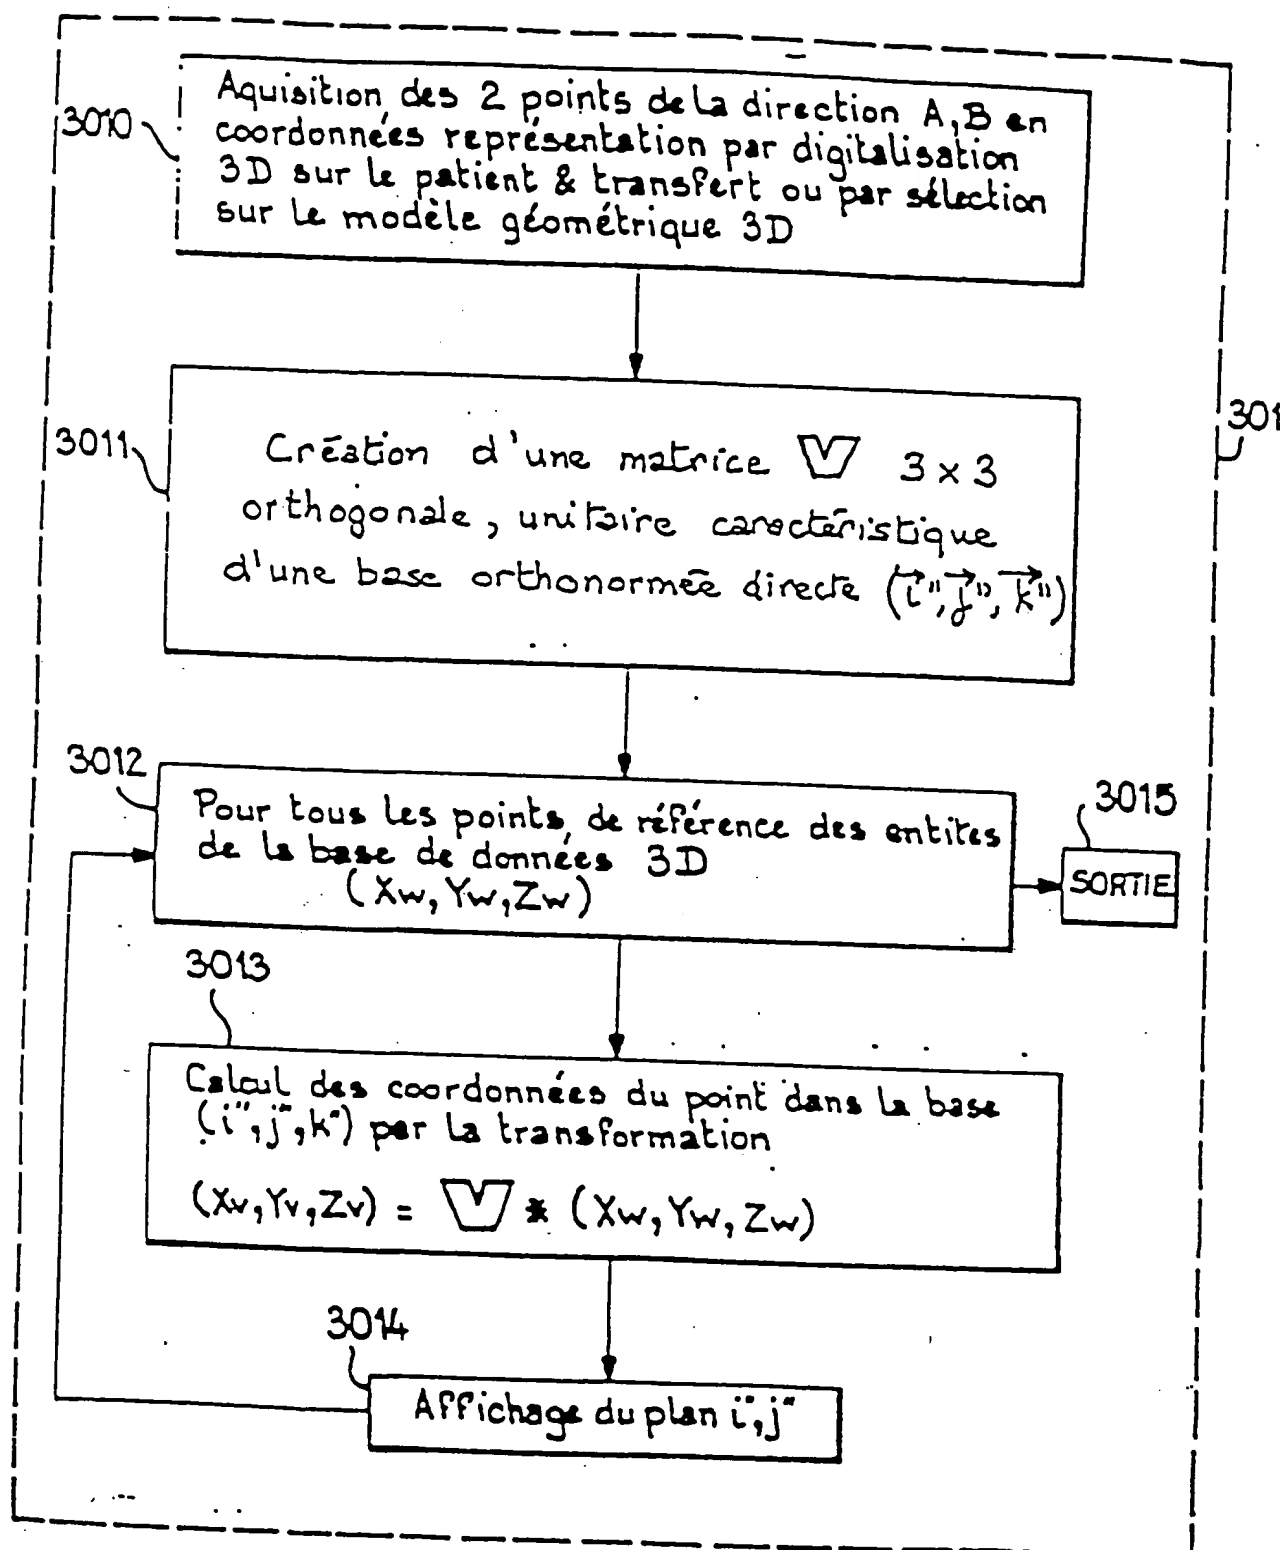 3010
Aquisition des 2 points de la direction A, B en
coordonnées représentation par digitalisation
3D sur le patient & transfert ou par sélection
sur le modèle géométrique 3D
301
3011
Création d'une matrice V 3 x 3
orthogonale, unitaire caractéristique
d'une base orthonormée directe (i", j", k")
3012
Pour tous les points, de référence des entites
de la base de données 3D
(Xw, Yw, Zw)
3015
SORTIE
3013
Calcul des coordonnées du point dans la base
(i", j", k") par la transformation
(Xv, Yv, Zv) = V * (Xw, Yw, Zw)
3014
Affichage du plan i", j"